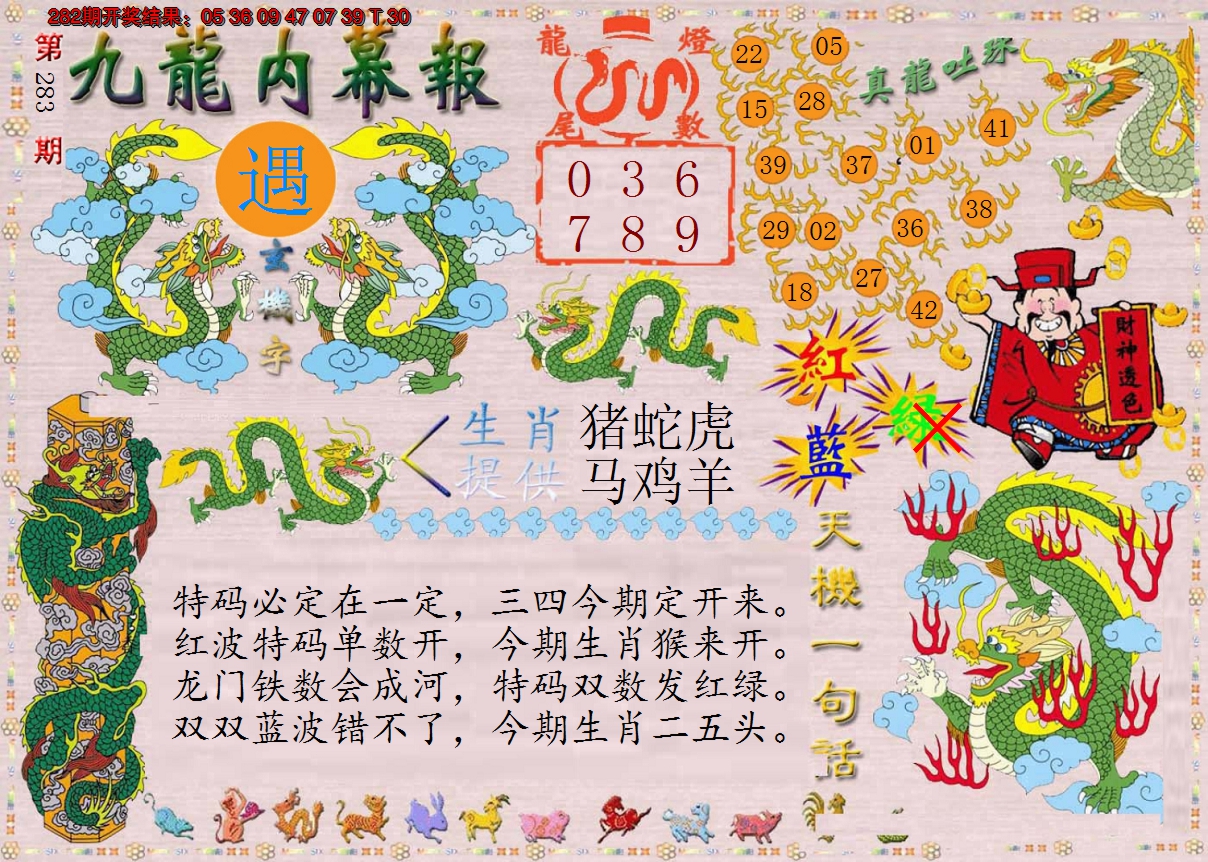 282期开奖结果：05 36 09 47 07 39 T 30
第283期
九龍内幕報
遇
玄機字
龍燈
尾數
0 3 6
7 8 9
真龍吐珠
22 05
15 28
39 37 01 41
29 02 36 38
18 27 42
紅
綠
藍
財神透色
生肖
提供
猪蛇虎
马鸡羊
天機一句话
特码必定在一定，三四今期定开来。
红波特码单数开，今期生肖猴来开。
龙门铁数会成河，特码双数发红绿。
双双蓝波错不了，今期生肖二五头。